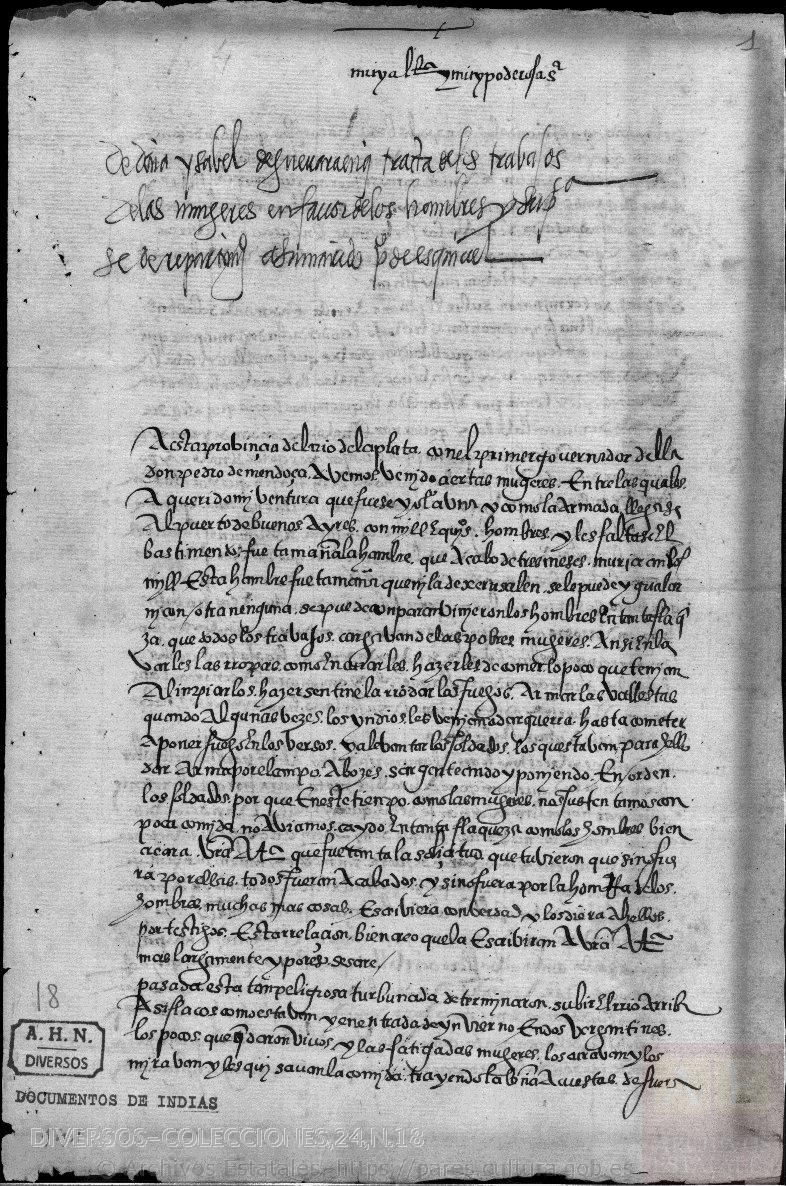 1
muy alta y muy poderosa sᵃ
De doña ysabel de guevara en q tracta de los trabajos
de las mugeres en favor de los hombres y
se de repartimyᵒ a su marido pº de esquivel
A esta probinçia del rio de la plata, con el primer governador della
don pedro de mendoça, Avemos venjdo çiertas mugeres. Entre las quales
A querido mj ventura que fuese yo la vna y como la Armada llegase
Al puerto de buenos Ayres. con mjll E qujºs. hombres. y les faltase El
bastimento. fue tamaña la hambre. que A cabo de tres meses. murieron los
mjll. Esta hambre fue tamaña que nj la de xerusalen. se le puede ygualar
nj con otra nenguna. se puede conparar. vinieron los hombres En tanta flaque
za. que todos los travajos. cargavan de las pobres mugeres. Ansi En la
varles las rropas. como En curarles. hazerles de comer lo poco que tenjan
A linpiarlos. hazer sentinela rrodar los fuegos. Armar las vallestas
quando Algunas vezes. los yndios les venjen a dar guerra. hasta cometer
A poner fuego En los versos. y a levantar los soldados. los questavan para hello
dar Arma por el canpo. A bozes. sargenteando y ponjendo. En orden.
los soldados. por que En este tienpo. como las mugeres. nos sustentamos con
poca comjda. no Aviamos caydo En tanta flaqueza como los hombres bien
creera. vrā A.tᵃ que fue tanta la soliçitud que tuvieron que si no fue
ra por ellas. todos fueran Acabados. y si no fuera por la honrra de los.
hombres muchas mas cosas. Escriviera con verdad y los diera A hellos.
por testigos. Esta rrelaçion. bien creo que la Escribiran A vrā A.tᵃ
mas largamente y por eso sesare/
pasada esta tan peligrosa turbunada determinaron. subir El rrio Arriba
Asi flacos como estavan y en entrada de ynvierno. En dos vergantines.
los pocos que quedaron vivos. y las fatigadas mugeres. los curavan y los
miravan y les guisavan la comjda. trayendo la leña A cuestas. de fuera
18
A. H. N.
DIVERSOS
DOCUMENTOS DE INDIAS
DIVERSOS-COLECCIONES,24,N.18
© Archivos Estatales, https://pares.cultura.gob.es